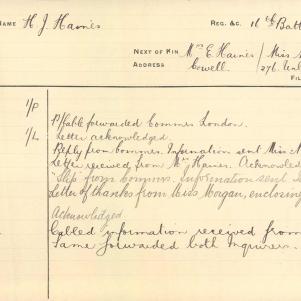 NAME H J Haines REG. &C. 16th Batt
NEXT OF KIN Mrs E. Haines / Miss
ADDRESS Cowell 276.
FIL
1/P P/Cable forwarded Commrs London.
1/L Letter acknowledged.
Reply from Commrs. Information sent Miss
Letter received from Mrs Haines. Acknowled
"Slip" from Commrs. Information sent
Letter of thanks from Miss Morgan, enclosing
Acknowledged
Cabled information received from
Same forwarded both inquirers.